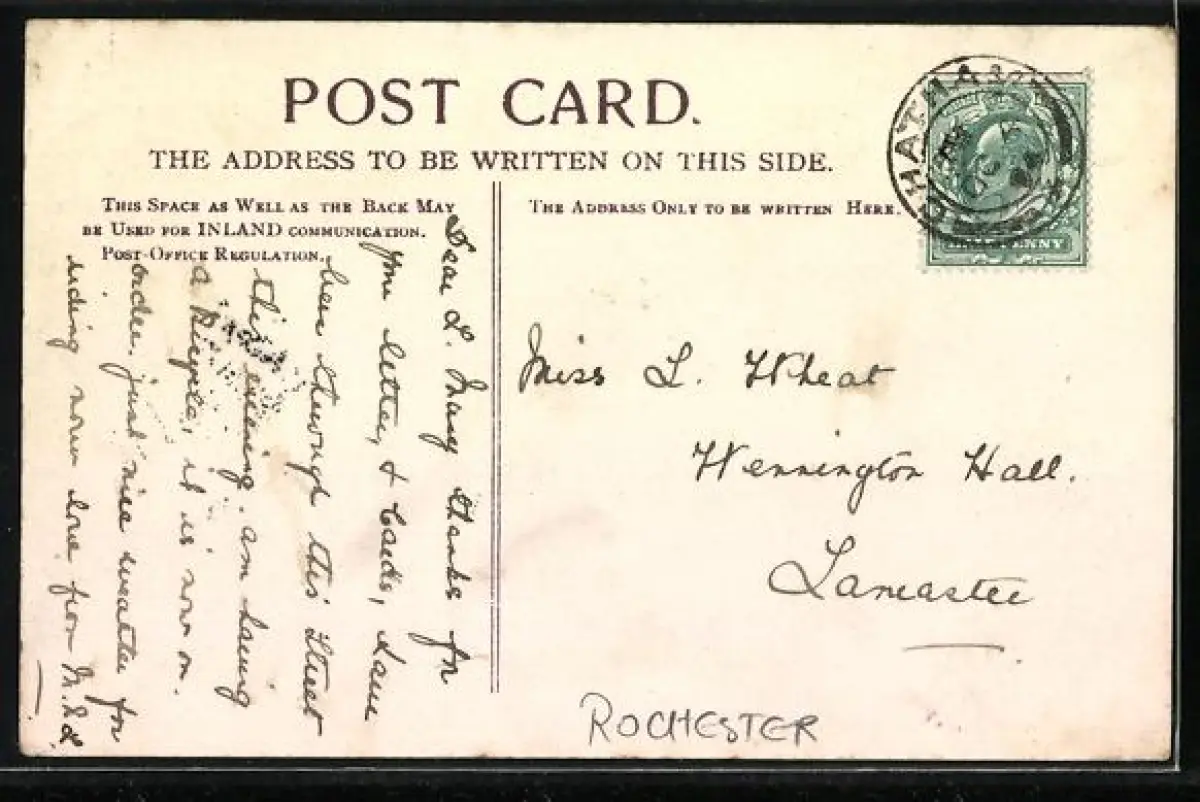 POST CARD.
THE ADDRESS TO BE WRITTEN ON THIS SIDE.
THIS SPACE AS WELL AS THE BACK MAY
BE USED FOR INLAND COMMUNICATION.
POST-OFFICE REGULATION.
THE ADDRESS ONLY TO BE WRITTEN HERE.
CHATHAM
HALFPENNY
Dear L. Many thanks for
your letter, & cards, have
been through this Street
this evening. am having
a Bicycle, it is now on
order. just nice weather for
riding now love from M.
Miss L. Wheat
Wennington Hall.
Lancaster
ROCHESTER